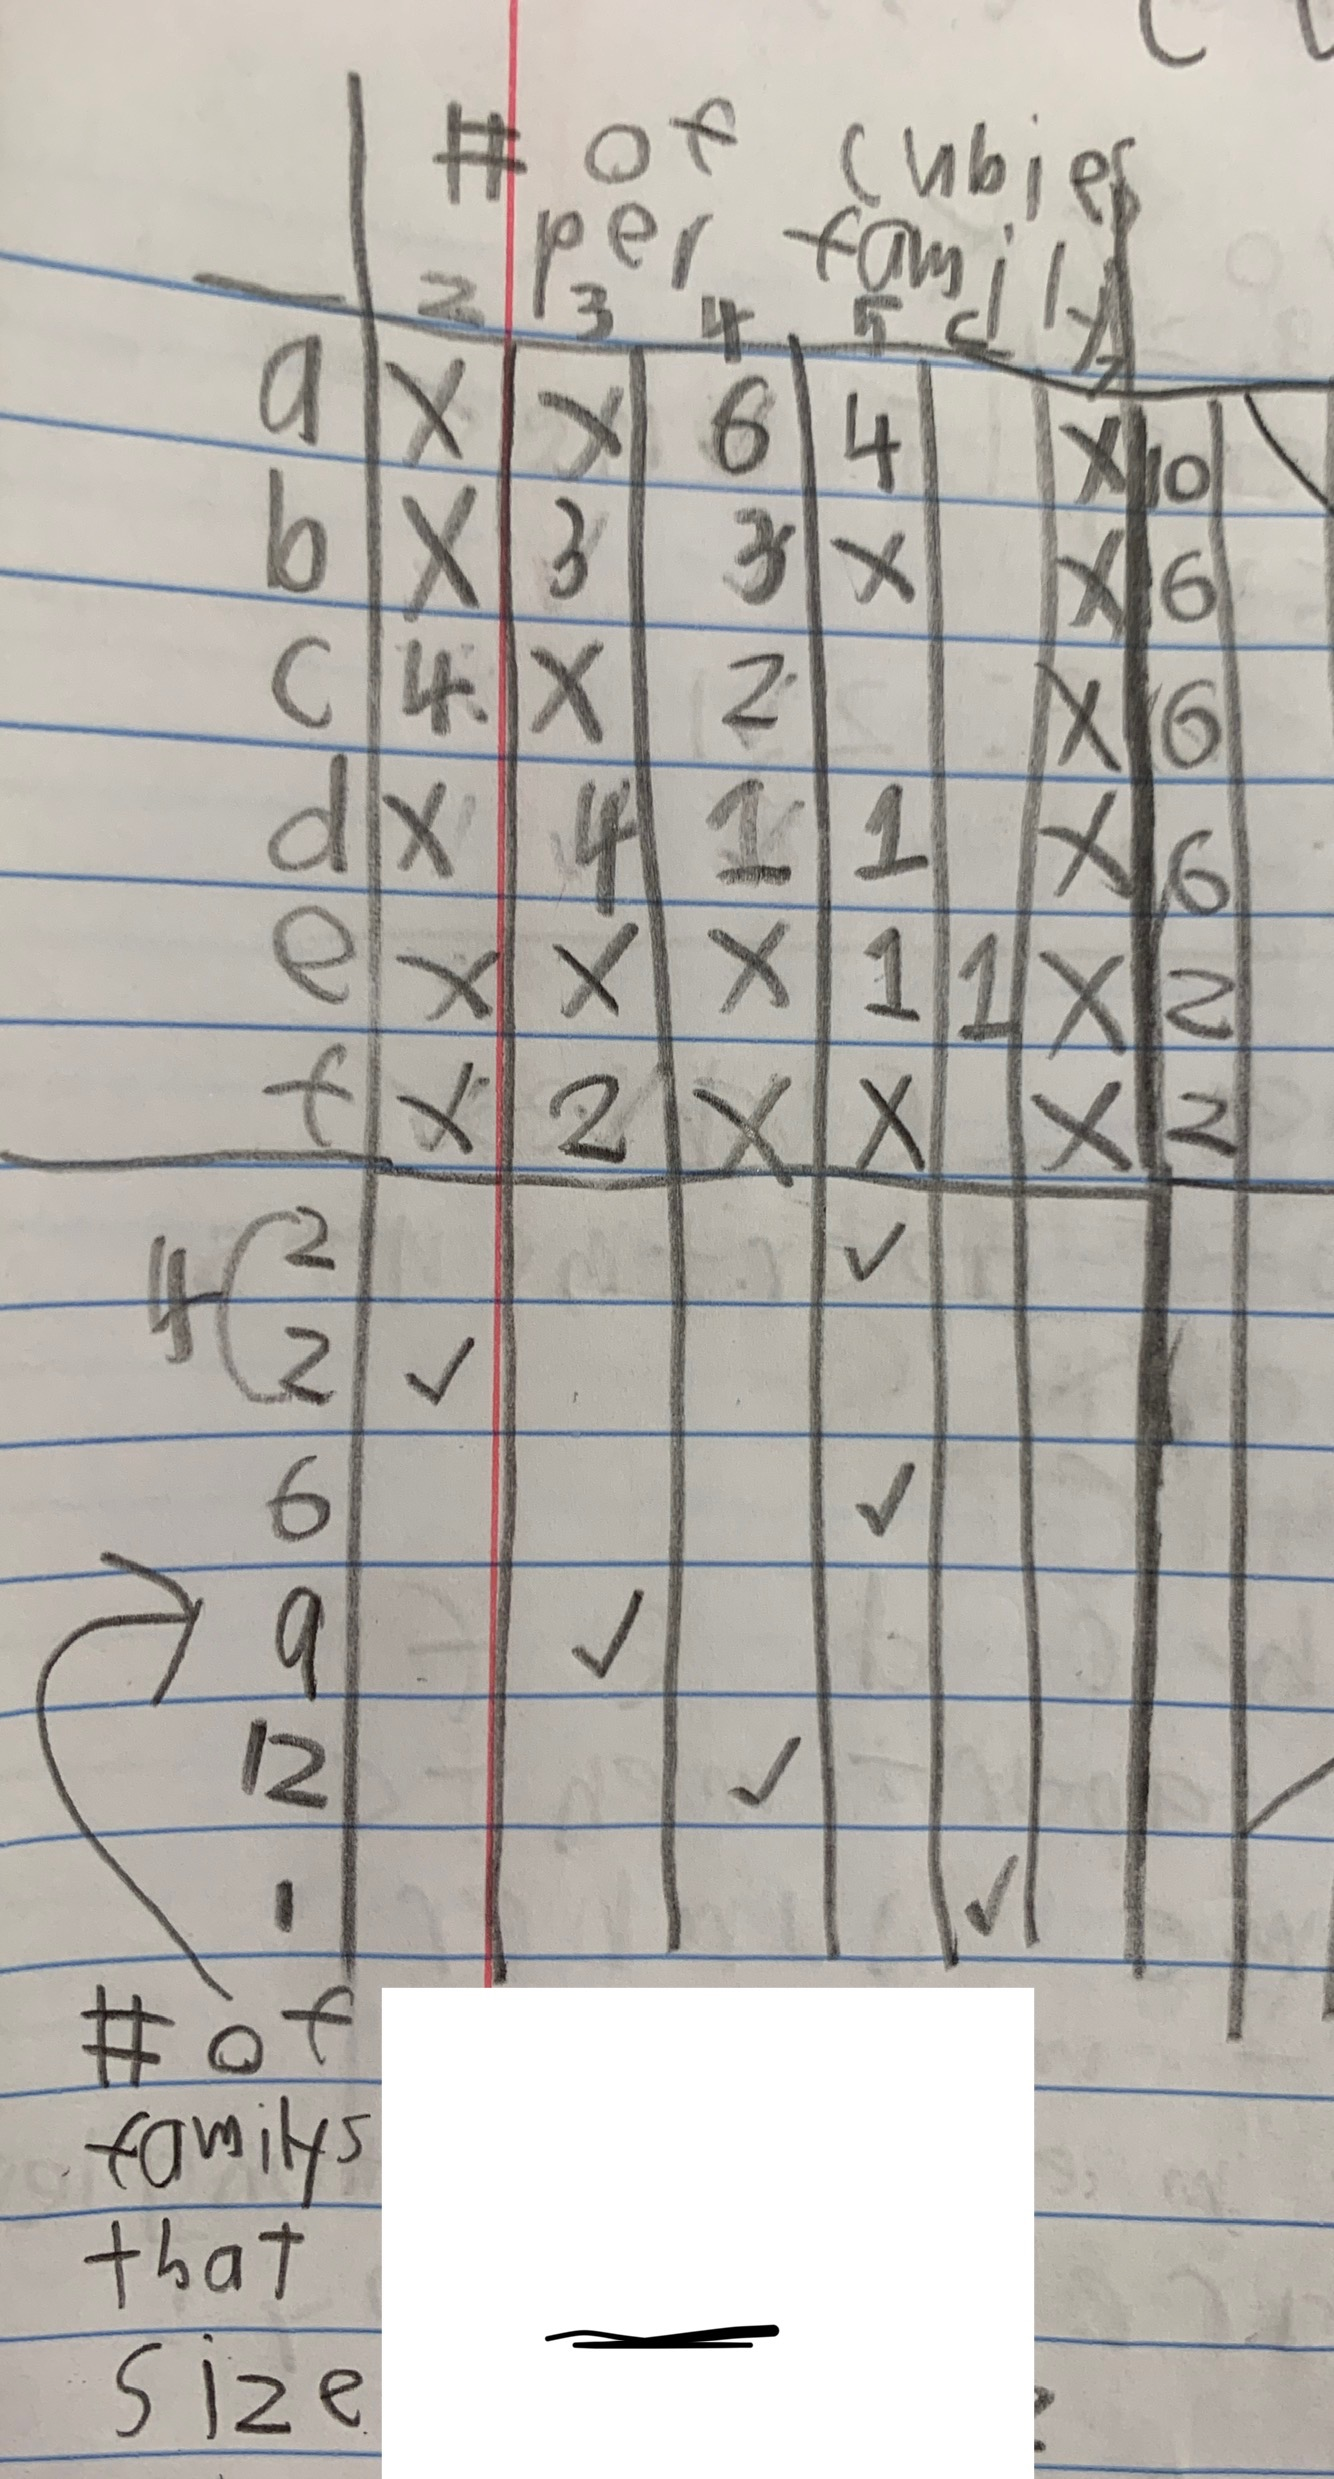 # of cubies
per family
2 3 4 5 7
a X X 6 4 X 10
b X 3 3 X X 6
c 4 X 2 X 6
d X 4 1 1 X 6
e X X X 1 1 X 2
f X 2 X X X 2
4 ( 2 ✓
2 ✓
6 ✓
9 ✓
12 ✓
1 ✓
# of
familys
that
size